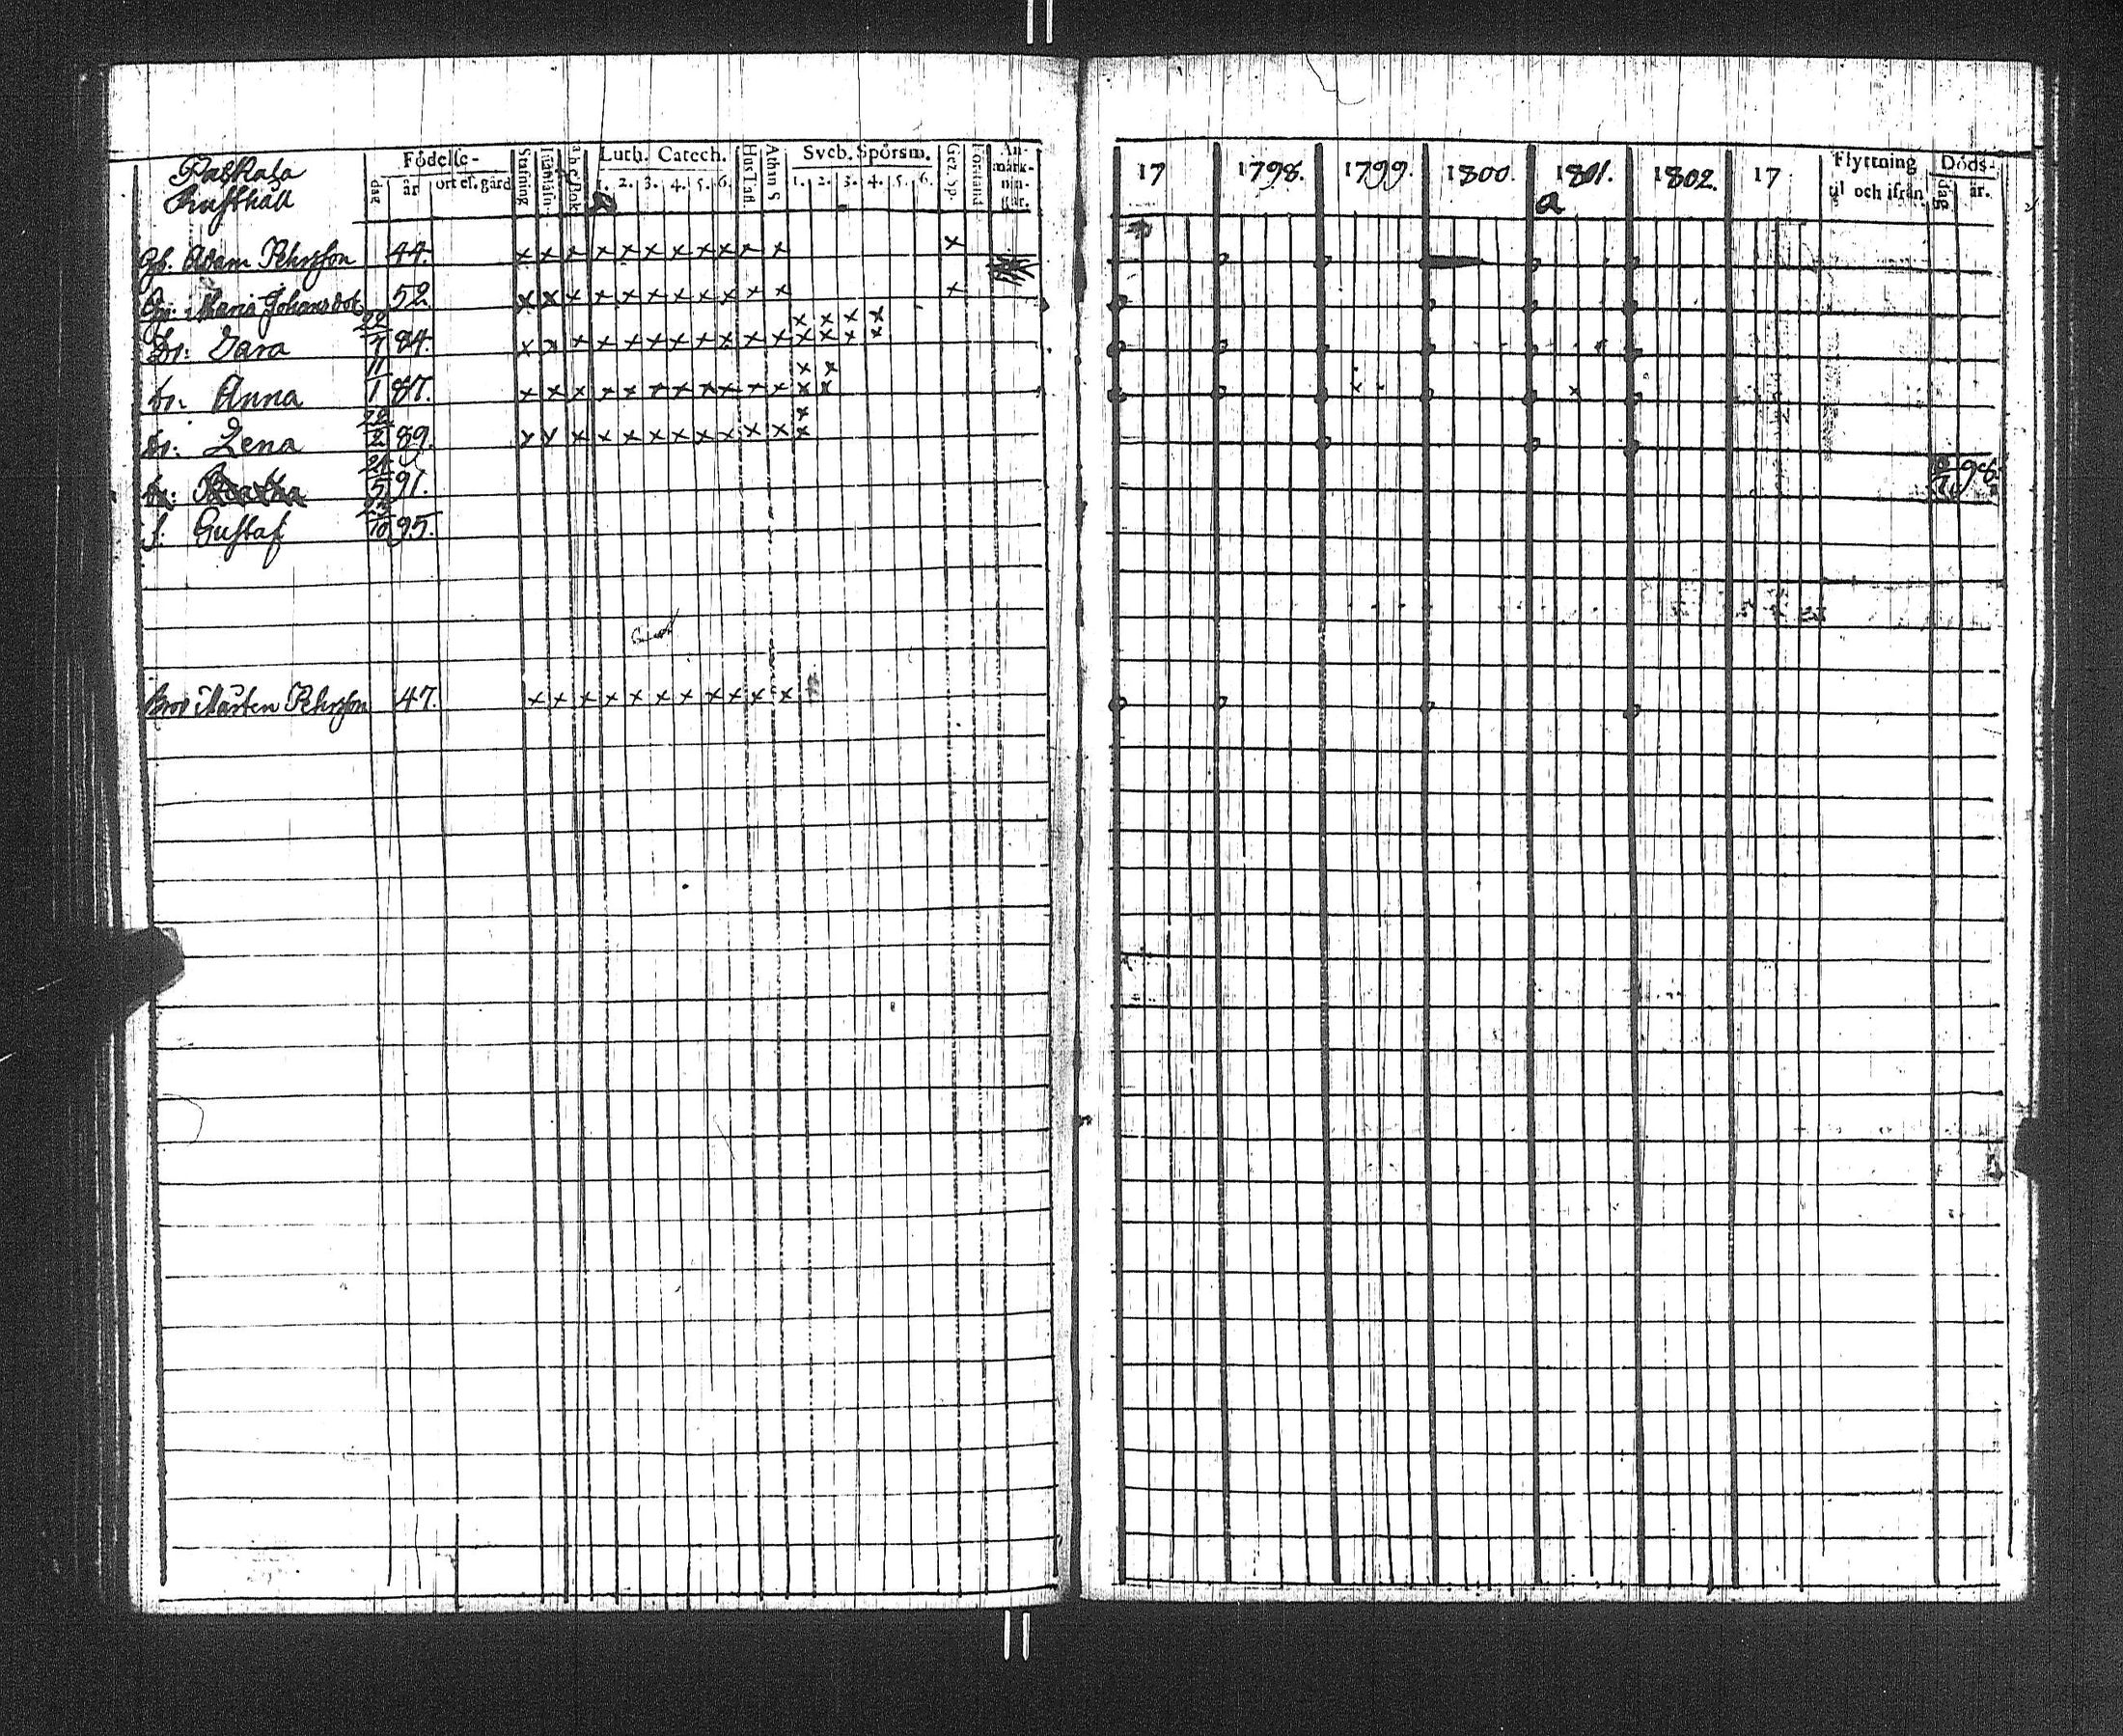 Rusthåll
Födelse-
dag år ort el. gård
Stafning
Luth. Catech.
1. 2. 3. 4. 5. 6.
Hus Tafl.
Athan S
Sveb. Spörsm.
1. 2. 3. 4. 5. 6.
Gez. Sp.
Förstånd
An-
märk-
nin-
gar.
17 1798. 1799. 1800. 1801. 1802. 17
a
Flyttning
til och ifrån
Döds-
dag år.
Adam Pehrsson 44. x x x x x x x x x x x x
Maria Johansdot 52. x x x x x x x x x x x x
x x x x
Dr: Sara 22/7 84. x x x x x x x x x x x x x x x
x x
dr: Anna 11/1 87. x x x x x x x x x x x x x
x
dr: Lena 22/2 89. x x x x x x x x x x x x
91. 98
s. Gustaf 95.
Bror Mårten Pehrsson 47. x x x x x x x x x x x